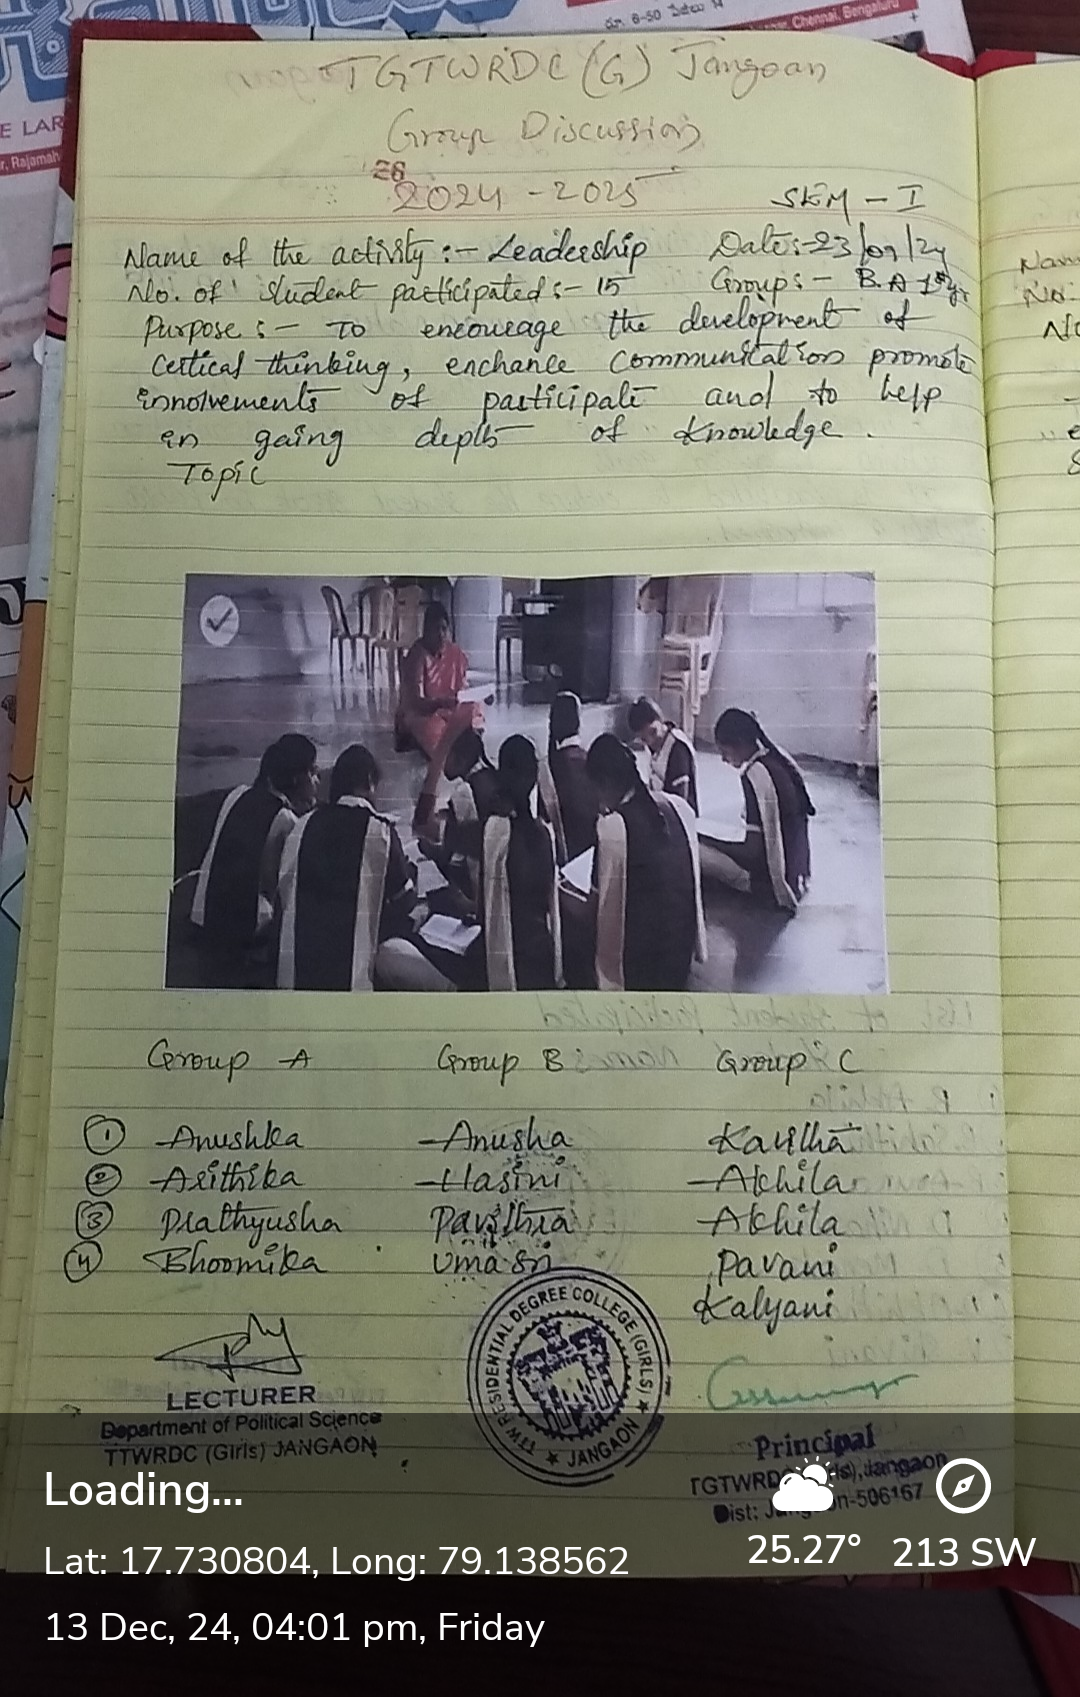 రూ. 6-50 పేజీలు 14
Chennai, Bengaluru
E LAR
r, Rajamah
TGTWRDC (G) Jangoan
Group Discussion
2024 - 2025
SEM - I
Name of the activity :- Leadership Date:-23/09/24
No. of student participated :- 15 Group :- B.A 1st yr
Purpose :- To encourage the development of
critical thinking, enchance communication promote
innolvements of participate and to help
in gaing depth of Knowledge.
Topic
Group A Group B Group C
1 Anushka Anusha Kavitha
2 Asithika Hasini Akhila
3 Prathyusha Pavithra Akhila
4 Bhoomika Uma Sri Pavani
Kalyani
LECTURER
Department of Political Science
TTWRDC (Girls) JANGAON
TTW RESIDENTIAL DEGREE COLLEGE (GIRLS) ★ JANGAON ★
Principal
TGTWRDC Jangaon
Dist: -506167
Loading...
Lat: 17.730804, Long: 79.138562
25.27° 213 SW
13 Dec, 24, 04:01 pm, Friday